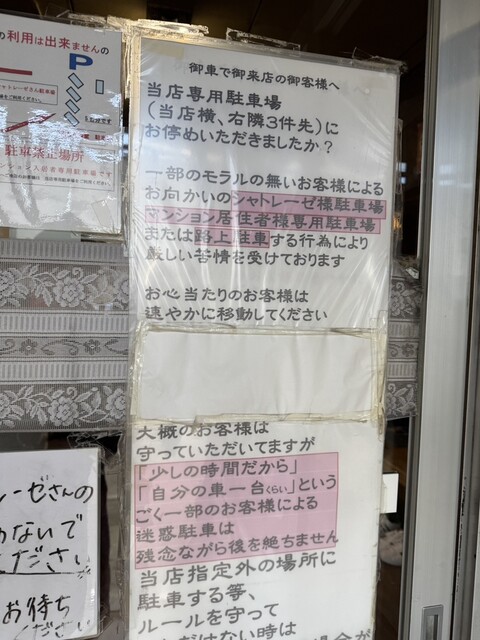 の利用は出来ませんの
P
駐車禁止場所
御車で御来店の御客様へ
当店専用駐車場
(当店横、右隣3件先)に
お停めいただきましたか?
一部のモラルの無いお客様による
お向かいのシャトレーゼ様駐車場
マンション居住者様専用駐車場
または路上駐車する行為により
厳しい苦情を受けております
お心当たりのお客様は
速やかに移動してください
大概のお客様は
守っていただいてますが
「少しの時間だから」
「自分の車一台くらい」という
ごく一部のお客様による
迷惑駐車は
残念ながら後を絶ちません
当店指定外の場所に
駐車する等、
ルールを守って
はない時は
ーゼさんの
ないで
ください
お待ち
ください